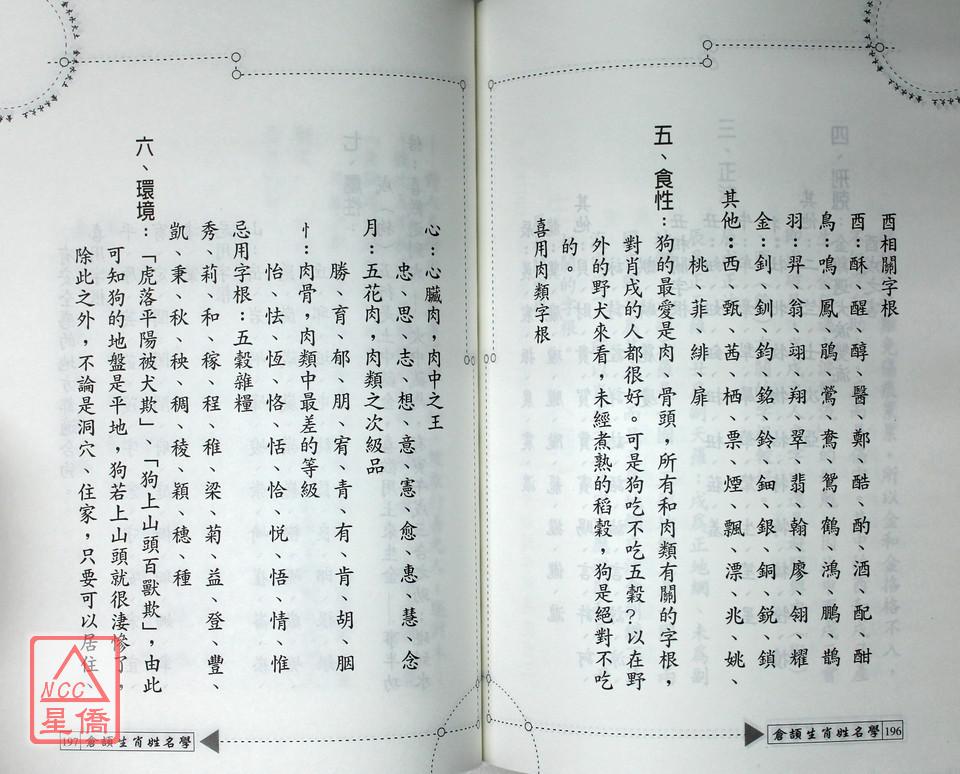 酉相關字根
酉：酥、醒、醇、醫、鄭、酷、酌、酒、配、酣
鳥：鳴、鳳、鵑、鶯、鴦、鴛、鶴、鴻、鵬、鵲
羽：羿、翁、翊、翔、翠、翡、翰、廖、翎、耀
金：釗、釧、鈞、銘、鈴、鈿、銀、銅、銳、鎖
其他：西、甄、茜、栖、栗、煙、飄、漂、兆、姚、
桃、菲、緋、扉
五、食性：狗的最愛是肉、骨頭，所有和肉類有關的字根，
對肖戌的人都很好。可是狗吃不吃五穀？以在野
外的野犬來看，未經煮熟的稻穀，狗是絕對不吃
的。
喜用肉類字根
倉頡生肖姓名學 196
心：心臟肉，肉中之王
忠、思、志、想、意、憲、愈、惠、慧、念
月：五花肉，肉類之次級品
勝、育、郁、朋、宥、青、有、肯、胡、胭
忄：肉骨，肉類中最差的等級
怡、怯、恆、恪、恬、恰、悅、悟、情、惟
忌用字根：五穀雜糧
秀、莉、和、稼、程、稚、梁、菊、益、登、豐、
凱、秉、秋、秧、稠、稜、穎、穗、種
六、環境：「虎落平陽被犬欺」、「狗上山頭百獸欺」，由此
可知狗的地盤是平地，狗若上山頭就很淒慘了，
除此之外，不論是洞穴、住家，只要可以居住、
197 倉頡生肖姓名學
NCC
星僑